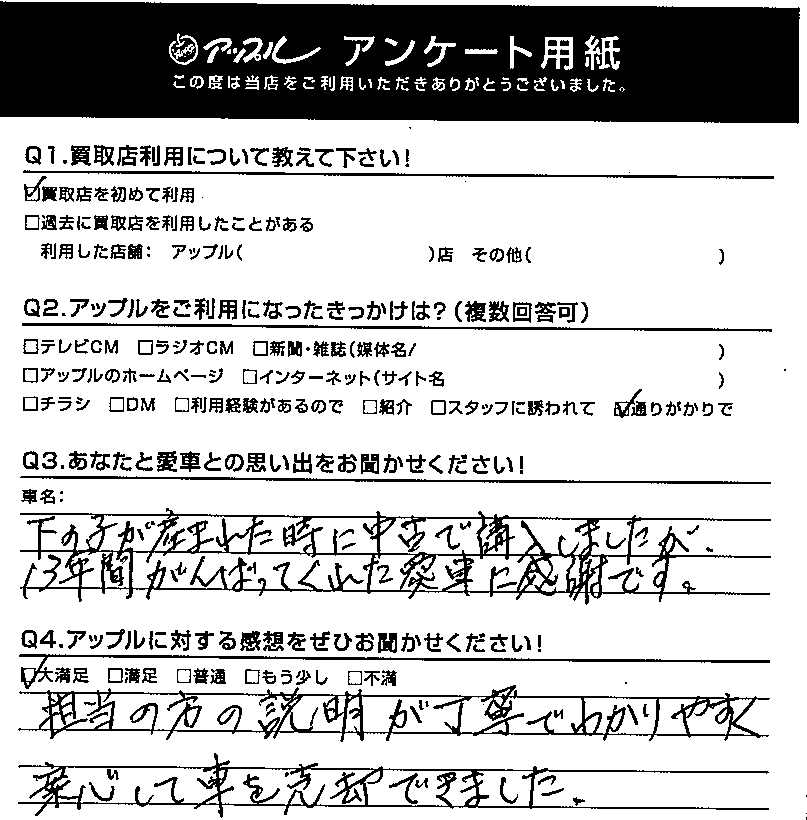 アップル アンケート用紙
この度は当店をご利用いただきありがとうございました。
Q1.買取店利用について教えて下さい!
☑買取店を初めて利用
□過去に買取店を利用したことがある
利用した店舗: アップル( )店 その他( )
Q2.アップルをご利用になったきっかけは?(複数回答可)
□テレビCM □ラジオCM □新聞・雑誌(媒体名/ )
□アップルのホームページ □インターネット(サイト名 )
□チラシ □DM □利用経験があるので □紹介 □スタッフに誘われて ☑通りがかりで
Q3.あなたと愛車との思い出をお聞かせください!
車名:
下の子が産まれた時に中古で購入しましたが、
13年間がんばってくれた愛車に感謝です。
Q4.アップルに対する感想をぜひお聞かせください!
☑大満足 □満足 □普通 □もう少し □不満
担当の方の説明が丁寧でわかりやすく
安心して車を売却できました。